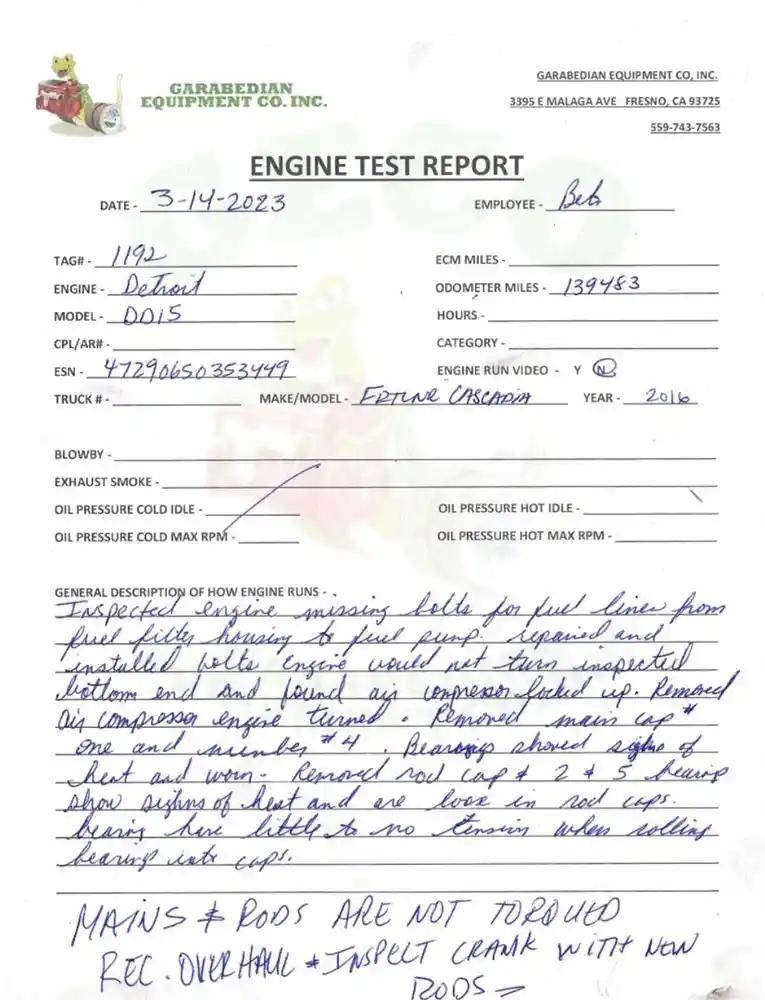 GARABEDIAN
EQUIPMENT CO. INC.
GARABEDIAN EQUIPMENT CO, INC.
3395 E MALAGA AVE FRESNO, CA 93725
559-743-7563
ENGINE TEST REPORT
DATE - 3-14-2023 EMPLOYEE -
TAG# - 1192 ECM MILES -
ENGINE - Detroit ODOMETER MILES - 139483
MODEL - DD15 HOURS -
CPL/AR# - CATEGORY -
ESN - 47290650353449 ENGINE RUN VIDEO - Y N
TRUCK # - MAKE/MODEL - FRTLNR CASCADIA YEAR - 2016
BLOWBY -
EXHAUST SMOKE -
OIL PRESSURE COLD IDLE - OIL PRESSURE HOT IDLE -
OIL PRESSURE COLD MAX RPM - OIL PRESSURE HOT MAX RPM -
GENERAL DESCRIPTION OF HOW ENGINE RUNS -
Inspected engine missing bolts for fuel lines from
fuel filter housing to fuel pump. repaired and
installed bolts engine would not turn inspected
bottom end and found air compressor locked up. Removed
air compressor engine turned. Removed main cap #
one and number #4. Bearings showed sighns of
heat and worn - Removed rod cap # 2 & 5 bearing
show sighns of heat and are loose in rod caps.
bearing have little to no tension when rolling
bearings into caps.
MAINS & RODS ARE NOT TORQUED
REC. OVERHAUL & INSPECT CRANK WITH NEW
RODS